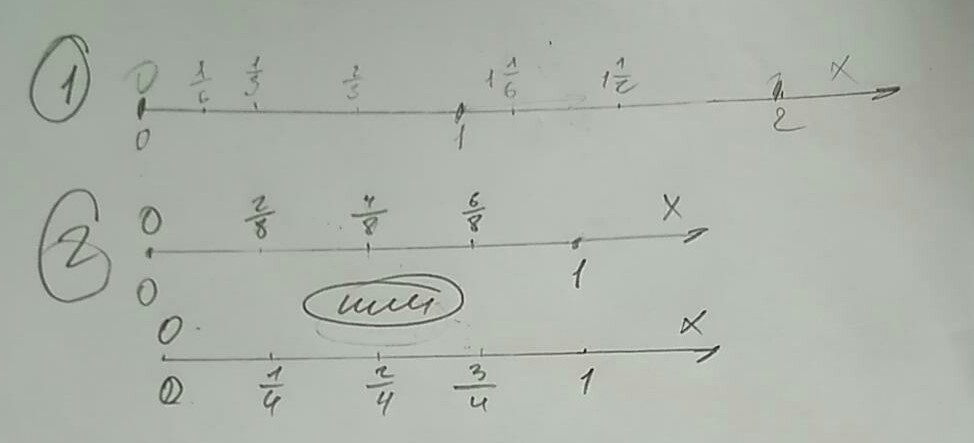 1 0 1/6 1/3 2/3 1 1/6 1 1/2 x
0 1 2
2 0 2/8 4/8 6/8 x
0 1
или
0 x
0 1/4 2/4 3/4 1